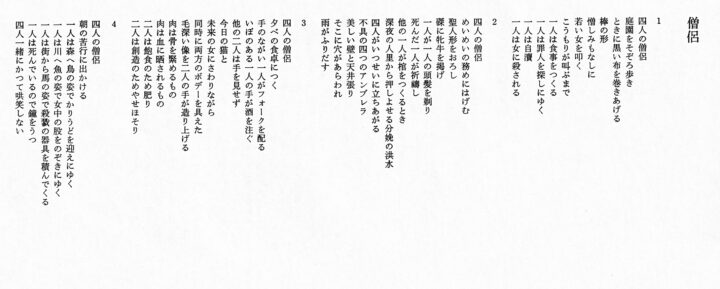 僧侶
1
四人の僧侶
庭園をそぞろ歩き
ときに黒い布を巻きあげる
棒の形
憎しみもなしに
若い女を叩く
こうもりが叫ぶまで
一人は食事をつくる
一人は罪人を探しにゆく
一人は自瀆
一人は女に殺される
2
四人の僧侶
めいめいの務めにはげむ
聖人形をおろし
磔に牝牛を掲げ
一人が一人の頭髪を剃り
死んだ一人が祈禱し
他の一人が棺をつくるとき
深夜の人里から押しよせる分娩の洪水
四人がいっせいに立ちあがる
不具の四つのアンブレラ
美しい壁と天井張り
そこに穴があらわれ
雨がふりだす
3
四人の僧侶
夕べの食卓につく
手のながい一人がフォークを配る
いぼのある一人の手が酒を注ぐ
他の二人は手を見せず
今日の猫と
未来の女にさわりながら
同時に両方のボデーを具えた
毛深い像を二人の手が造り上げる
肉は骨を緊めるもの
肉は血に晒されるもの
二人は飽食のため肥り
二人は創造のためやせほそり
4
四人の僧侶
朝の苦行に出かける
一人は森へ鳥の姿でかりうどを迎えにゆく
一人は川へ魚の姿で女中の股をのぞきにゆく
一人は街から馬の姿で殺戮の器具を積んでくる
一人は死んでいるので鐘をうつ
四人一緒にかつて哄笑しない